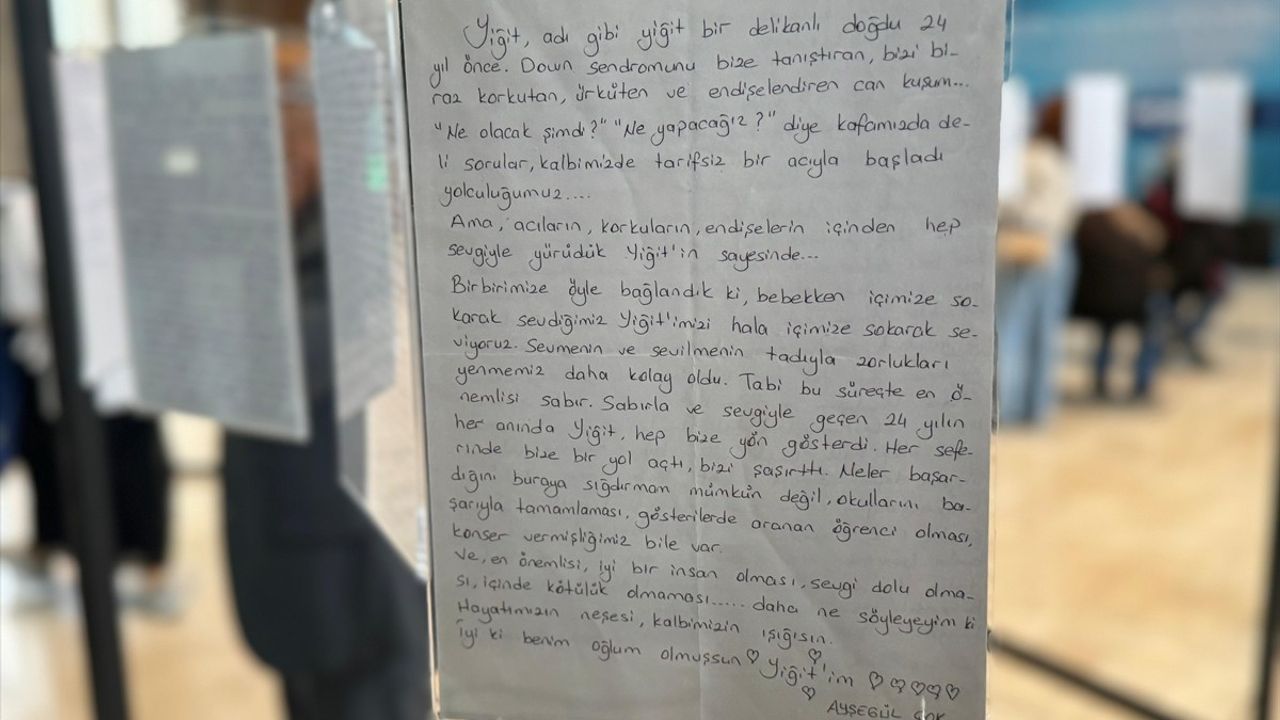 Yiğit, adı gibi yiğit bir delikanlı doğdu 24
yıl önce. Down sendromunu bize tanıştıran, bizi bi-
raz korkutan, ürküten ve endişelendiren can kuşum...
"Ne olacak şimdi?" "Ne yapacağız?" diye kafamızda de-
li sorular, kalbimizde tarifsiz bir acıyla başladı
yolculuğumuz....
Ama, acıların, korkuların, endişelerin içinden hep
sevgiyle yürüdük Yiğit'in sayesinde...
Birbirimize öyle bağlandık ki, bebekken içimize so-
karak sevdiğimiz Yiğit'imizi hala içimize sokarak se-
viyoruz. Sevmenin ve sevilmenin tadıyla zorlukları
yenmemiz daha kolay oldu. Tabi bu süreçte en ö-
nemlisi sabır. Sabırla ve sevgiyle geçen 24 yılın
her anında Yiğit, hep bize yön gösterdi. Her sefe-
rinde bize bir yol açtı, bizi şaşırttı. Neler başar-
dığını buraya sığdırmam mümkün değil, okullarını ba-
şarıyla tamamlaması, gösterilerde aranan öğrenci olması,
konser vermişliğimiz bile var.
Ve, en önemlisi, iyi bir insan olması, sevgi dolu olma-
sı, içinde kötülük olmaması..... daha ne söyleyeyim ki
Hayatımızın neşesi, kalbimizin ışığısın.
İyi ki benim oğlum olmuşsun ♡ Yiğit'im ♡♡♡♡♡
AYŞEGÜL